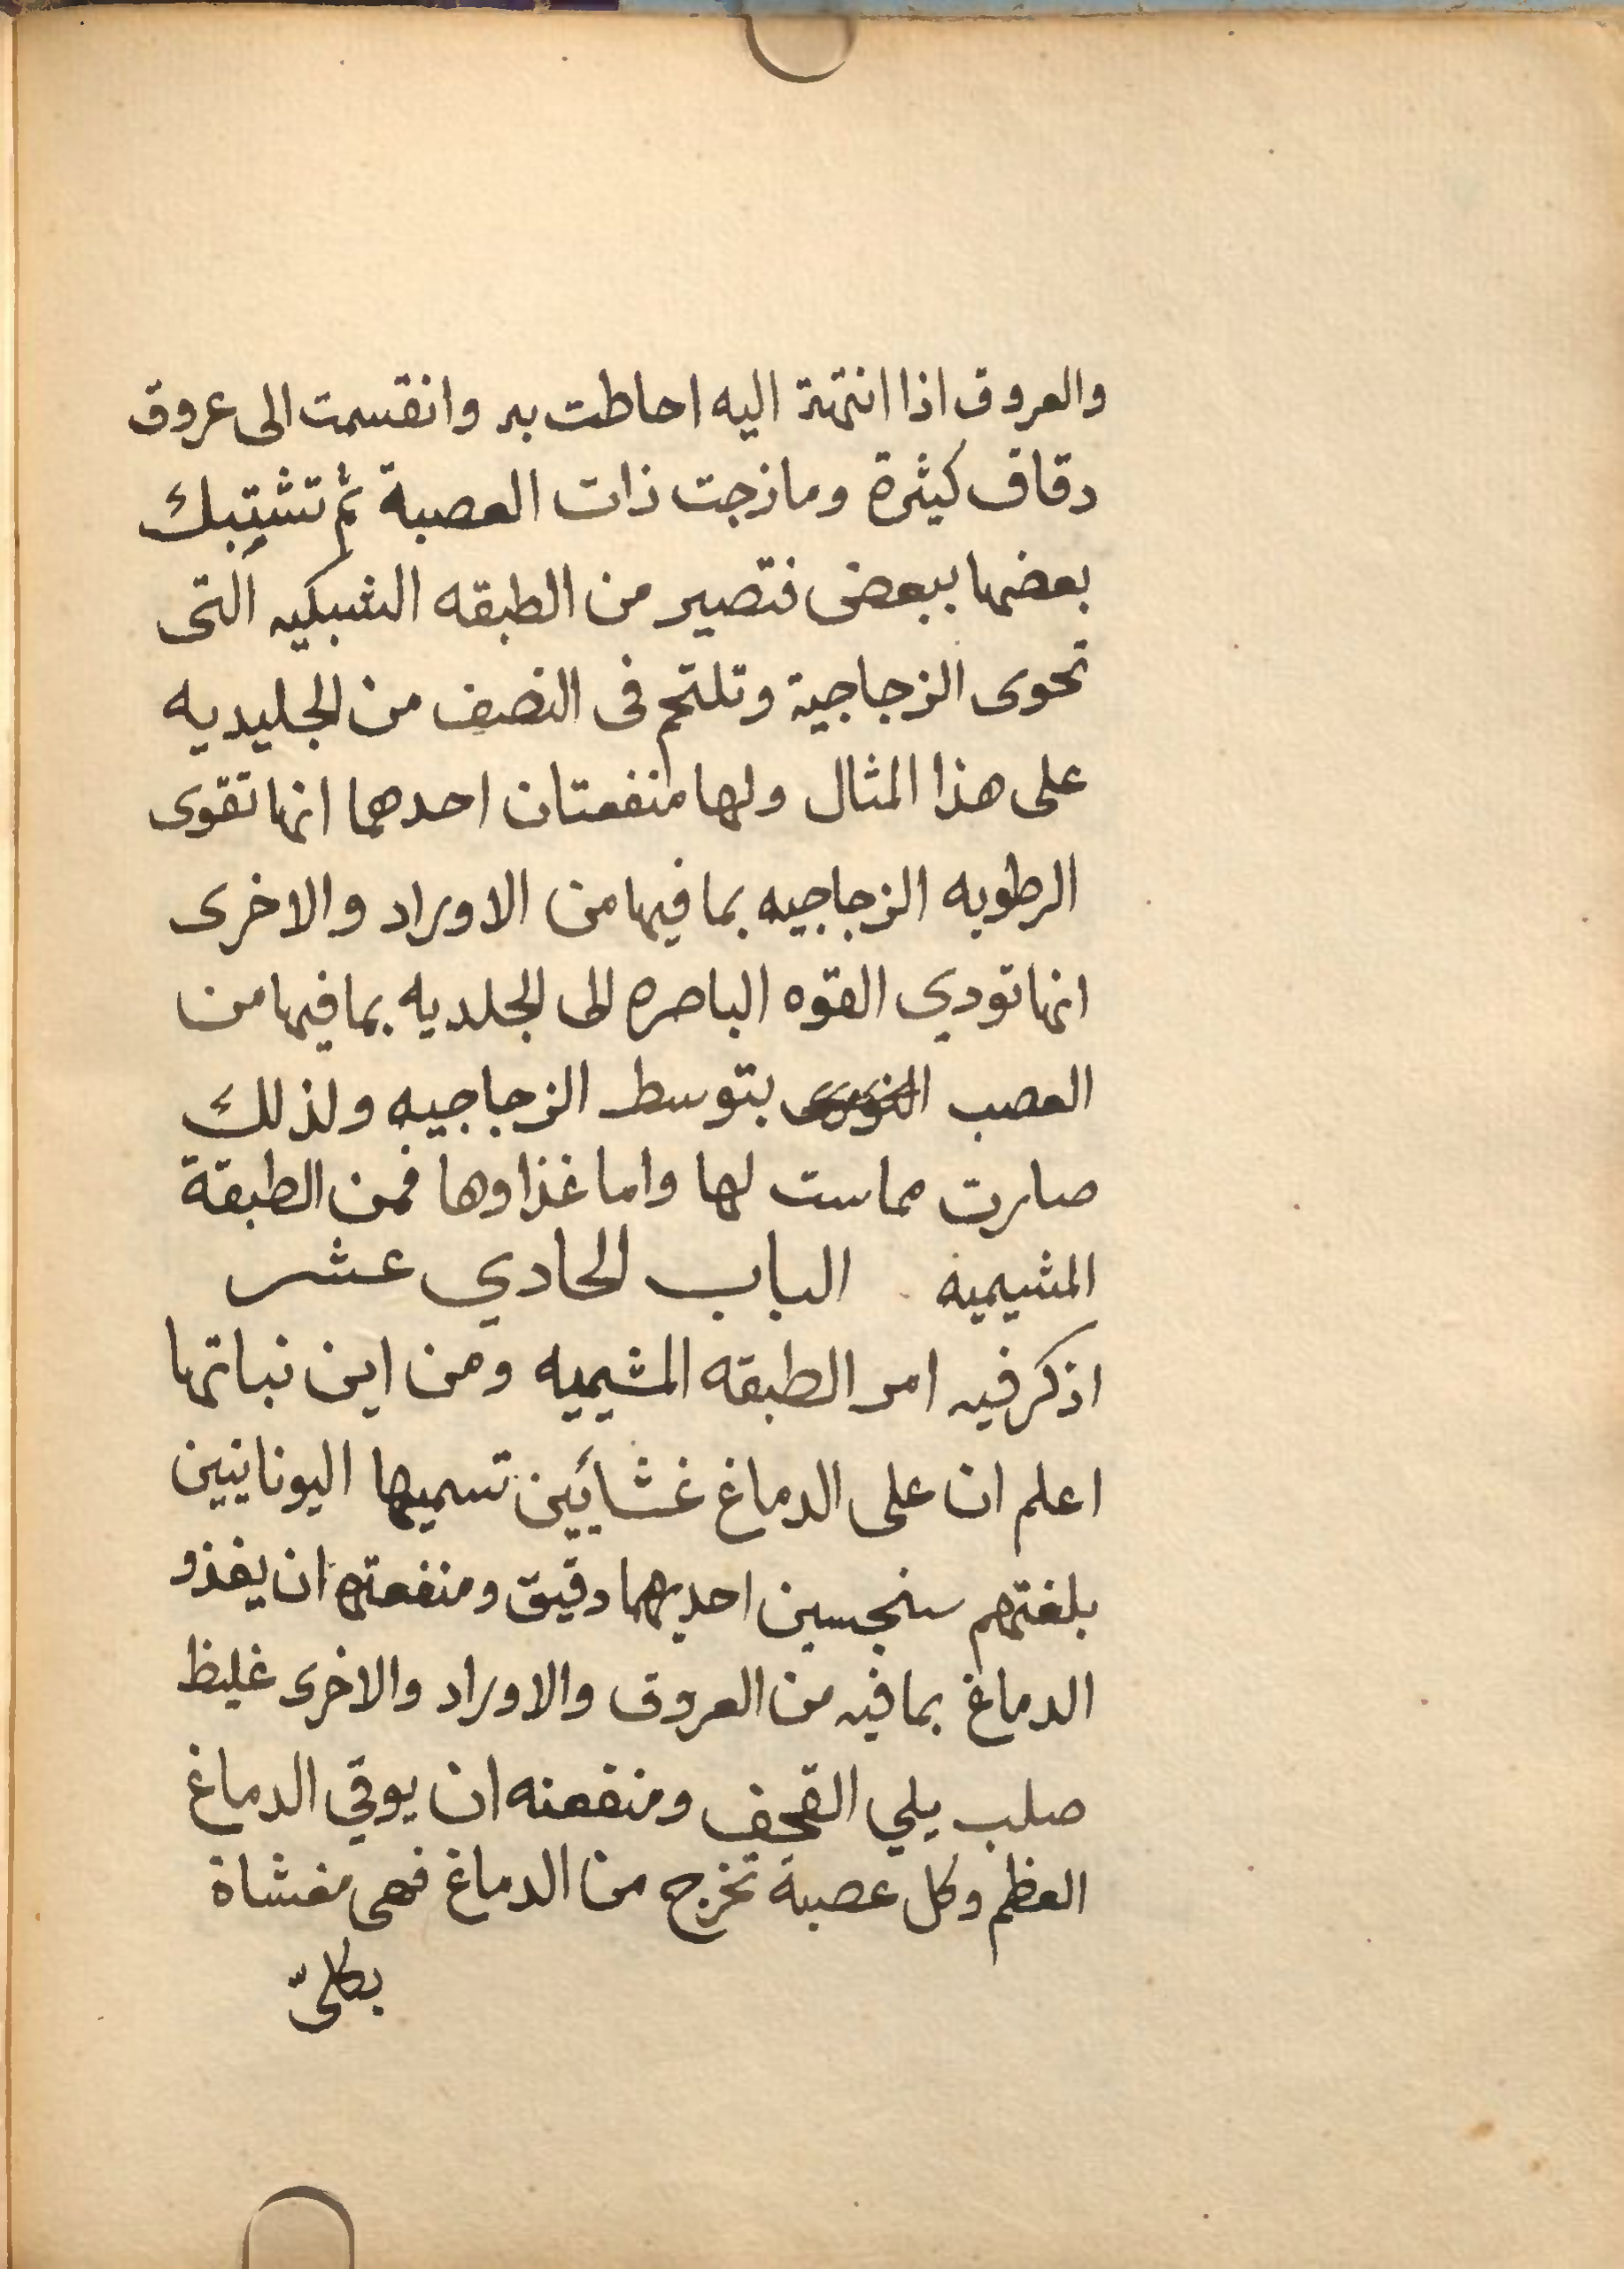 والعروق اذا انتهة اليه احاطت به وانقسمت الى عروق
دقاق كثيرة ومازجت ذات العصبة ثم تشتبك
بعضها ببعض فتصير من الطبقه الشبكيه التى
تحوى الزجاجية وتلتحم فى النصف من الجليديه
على هذا المثال ولها منفعتان احدهما انها تقوى
الرطوبه الزجاجيه بما فيها من الاوراد والاخرى
انها تودي القوه الباصره الى الجلديه بما فيها من
العصب بتوسط الزجاجيه ولذلك
صارت مماست لها واما غذاوها فمن الطبقة
المشيميه الباب الحادي عشر
اذكر فيه امر الطبقه المشيميه ومن اين نباتها
اعلم ان على الدماغ غشائين تسميها اليونانيين
بلغتهم سنجسين احديهما دقيق ومنفعتها ان يغذو
الدماغ بما فيه من العروق والاوراد والاخرى غليظ
صلب يلي القحف ومنفعته ان يوقي الدماغ
العظم وكل عصبة تخرج من الدماغ فهى مغشاة
بكلىّ